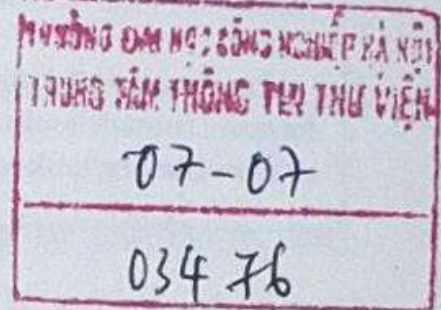 TRƯỜNG ĐẠI HỌC CÔNG NGHIỆP HÀ NỘI
TRUNG TÂM THÔNG TIN THƯ VIỆN
07-07
03476